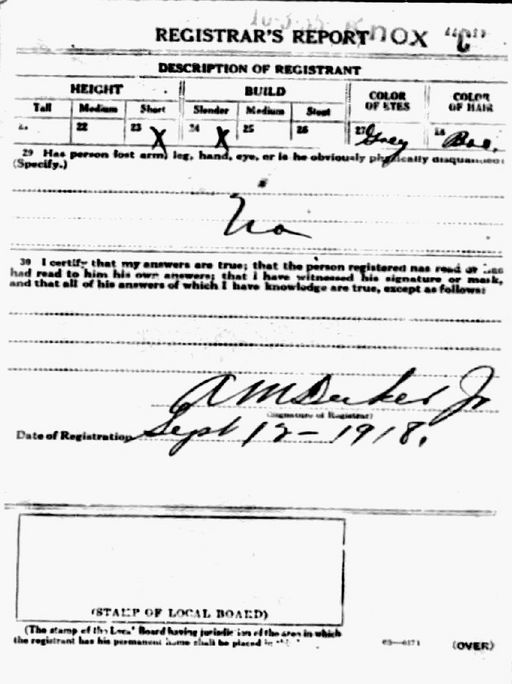 REGISTRAR'S REPORT Knox "C"
DESCRIPTION OF REGISTRANT
HEIGHT BUILD COLOR OF EYES COLOR OF HAIR
Tall Medium Short Slender Medium Stout
21 22 23 X 24 X 25 26 27 Grey 28
29 Has person lost arm, leg, hand, eye, or is he obviously physically disqualified?
(Specify.)
No
30 I certify that my answers are true; that the person registered has read or has
had read to him his own answers; that I have witnessed his signature or mark,
and that all of his answers of which I have knowledge are true, except as follows:
(Signature of Registrar)
Date of Registration Sept 12-1918.
(STAMP OF LOCAL BOARD)
(The stamp of the Local Board having jurisdiction of the area in which
the registrant has his permanent home shall be placed in
(OVER)